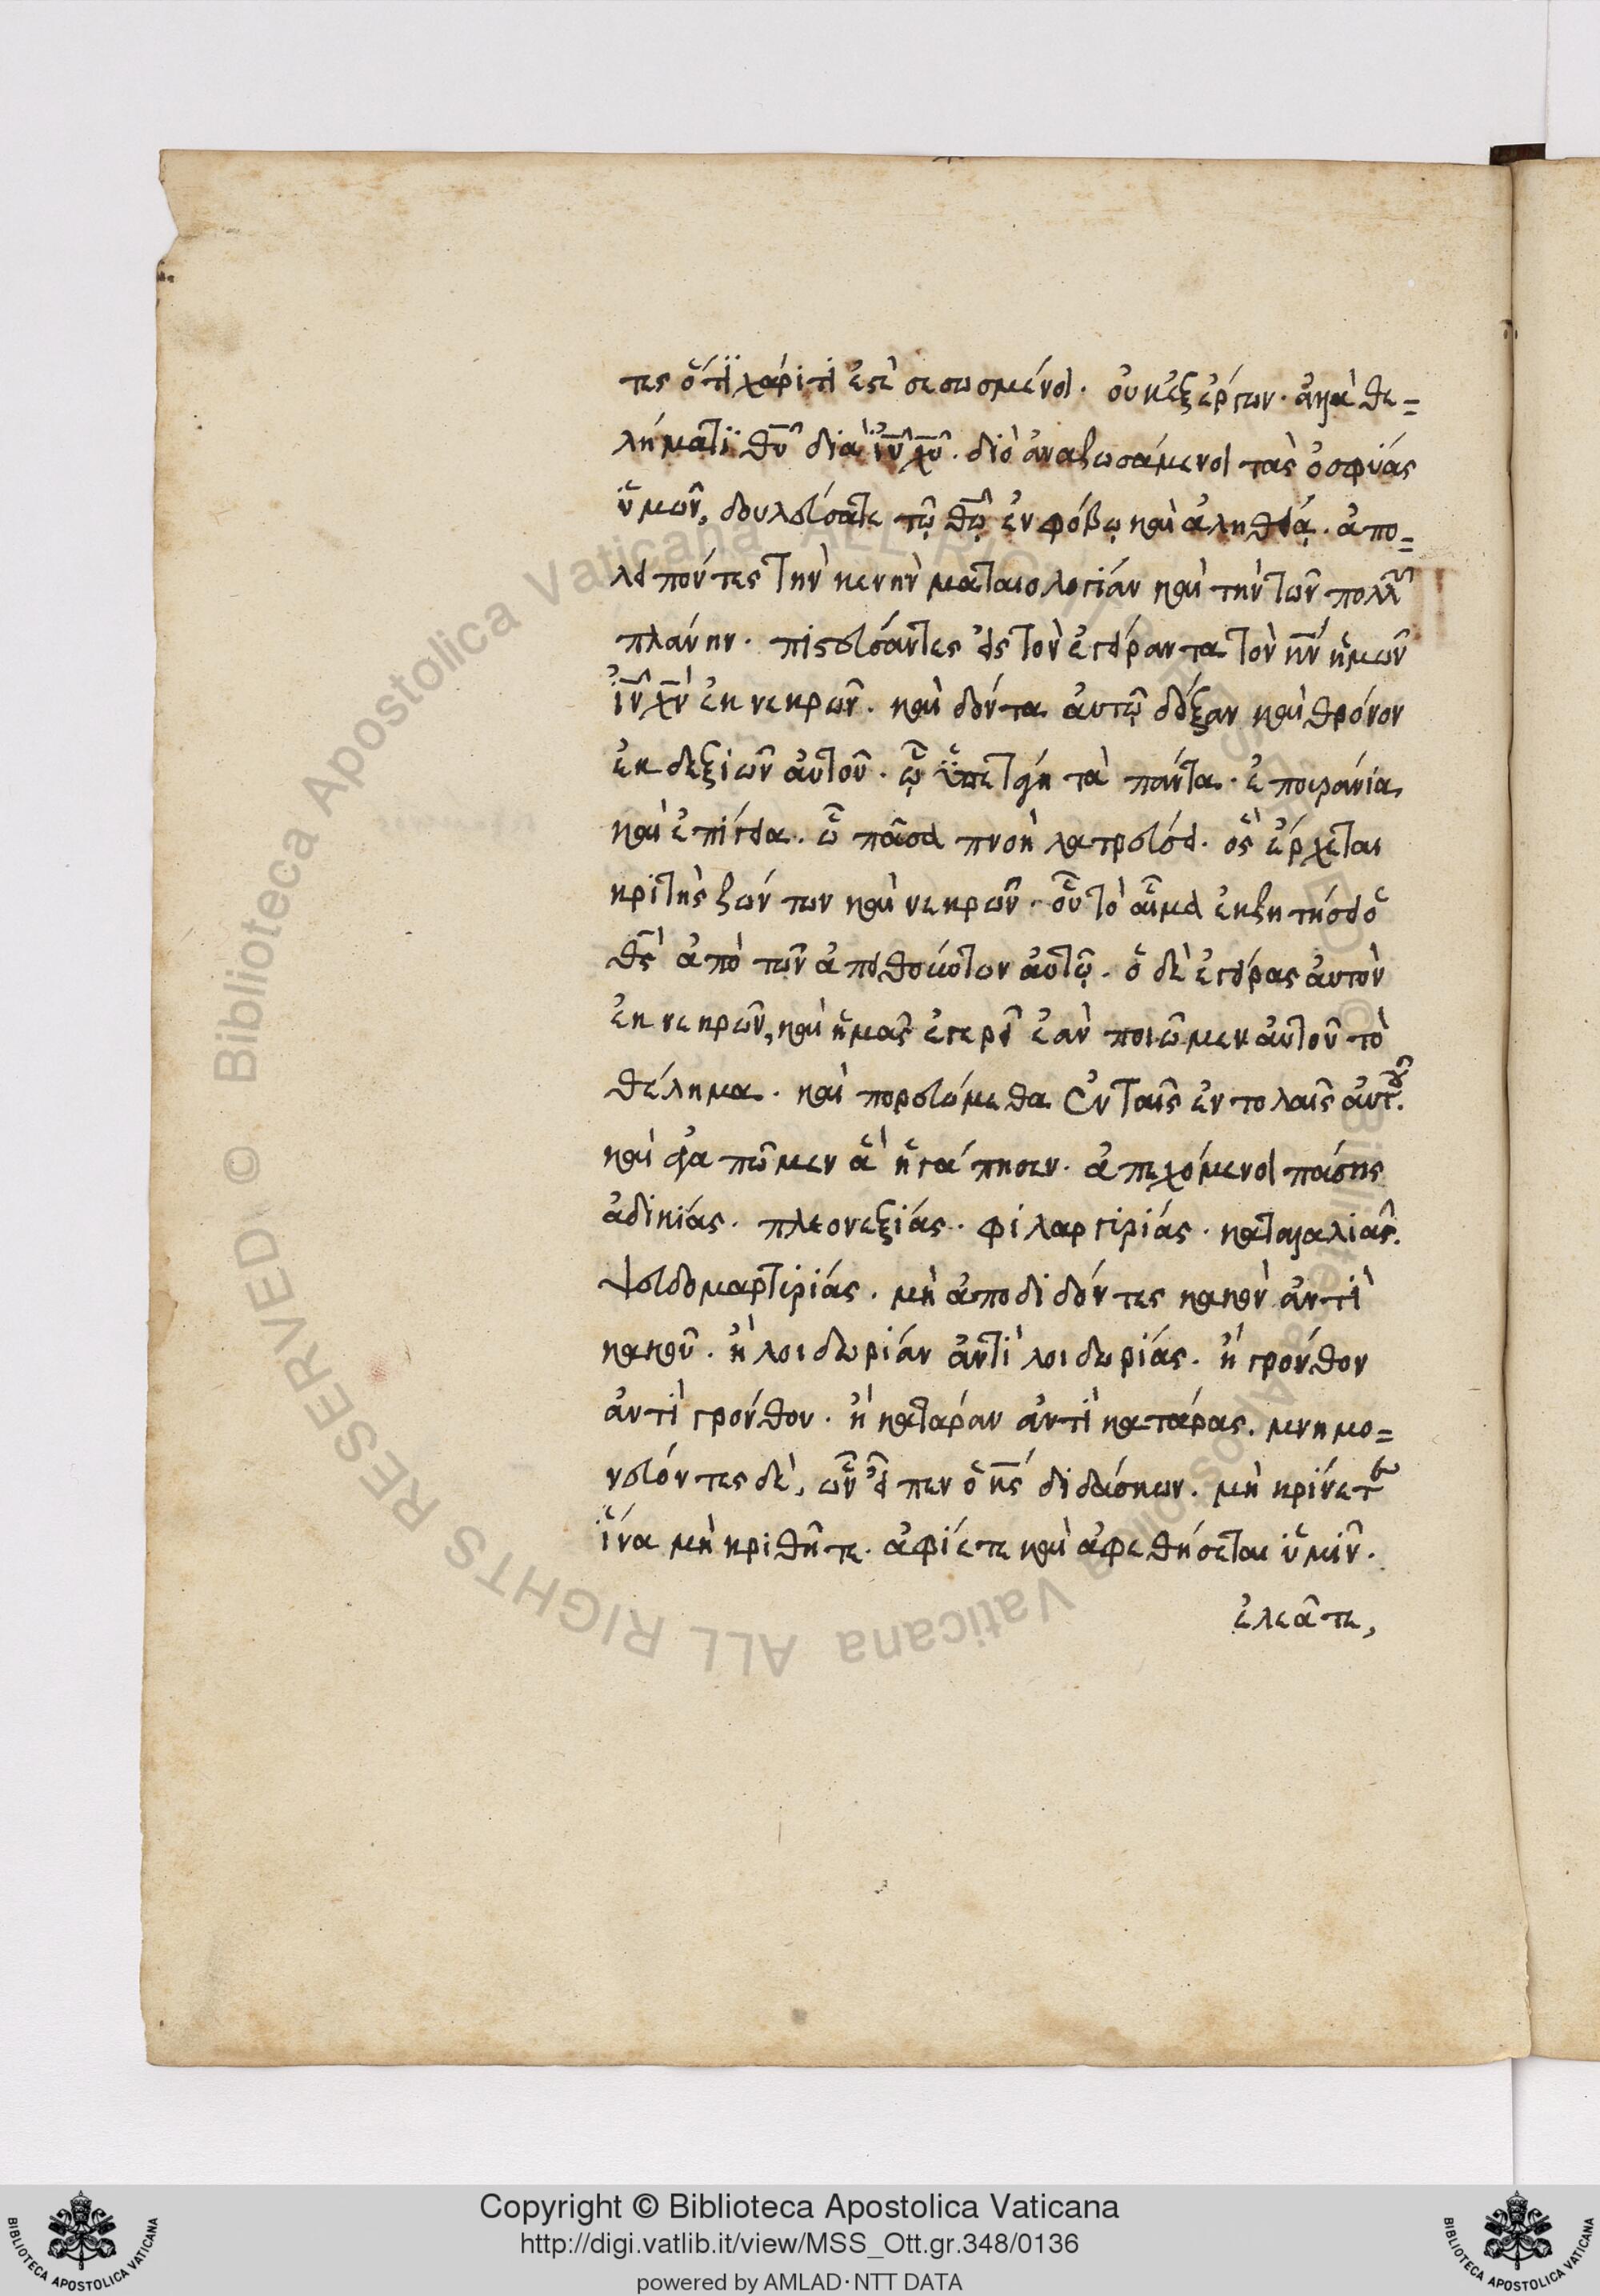 τες ὅτι χάριτί ἐστὲ σεσωσμένοι. οὐκ ἐξ ἔργων. ἀλλὰ θε=
λήματι θῦ διὰ ἰῦ χῦ. διὸ ἀναζωσάμενοι τὰς ὀσφύας
ὑμῶν, δουλεύσατε τῷ θῶ ἐν φόβῳ καὶ ἀληθείᾳ. ἀπο=
λειπόντες τὴν κενὴν ματαιολογίαν καὶ τὴν τῶν πολλῶν
πλάνην. πιστεύσαντες εἰς τὸν ἐγείραντα τὸν κν ἡμῶν
ἰν χν ἐκ νεκρῶν. καὶ δόντα αὐτῷ δόξαν καὶ θρόνον
ἐκ δεξιῶν αὐτοῦ. ᾧ ὑπετάγη τὰ πάντα. ἐπουράνια
καὶ ἐπίγεια. ᾧ πᾶσα πνοὴ λατρεύσει. ὃς ἔρχεται
κριτὴς ζώντων καὶ νεκρῶν. οὗ τὸ αἷμα ἐκζητήσει ὁ
θς ἀπὸ τῶν ἀπειθούντων αὐτῷ. ὁ δὲ ἐγείρας αὐτὸν
ἐκ νεκρῶν, καὶ ἡμᾶς ἐγερεῖ ἐὰν ποιῶμεν αὐτοῦ τὸ
θέλημα. καὶ πορευώμεθα ἐν ταῖς ἐντολαῖς αὐτοῦ.
καὶ ἀγαπῶμεν ἃ ἠγάπησεν. ἀπεχόμενοι πάσης
ἀδικίας. πλεονεξίας. φιλαργιρίας. καταλαλιᾶς.
ψευδομαρτιρίας. μὴ ἀποδιδόντες κακὸν ἀντὶ
κακοῦ. ἢ λοιδωρίαν ἀντὶ λοιδωρίας. ἢ γρόνθον
ἀντὶ γρόνθου. ἢ κατάραν ἀντὶ κατάρας. μνημο=
νεύοντες δὲ, ὧν εἶπεν ὁ κς διδάσκων. μὴ κρίνετε
ἵνα μὴ κριθῆτε. ἀφίετε καὶ ἀφεθήσεται ὑμῖν.
ἐλεᾶτε,
Copyright © Biblioteca Apostolica Vaticana
http://digi.vatlib.it/view/MSS_Ott.gr.348/0136
powered by AMLAD·NTT DATA